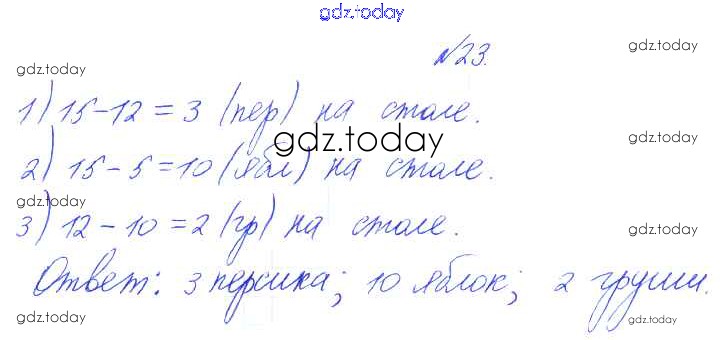 gdz.today
№23.
gdz.today
gdz.today
1) 15-12 = 3 (пер) на столе.
gdz.today
gdz.today
2) 15-5=10 (ябл) на столе.
gdz.today
3) 12-10=2 (гр) на столе.
gdz.today
Ответ: 3 персика; 10 яблок; 2 груши.
gdz.today
gdz.today